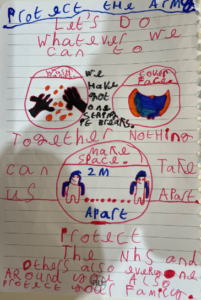 Protect the Army
Let's Do
Whatever we
can to
Wash
we
make
not
one
string
Cover
Face.
Together Nothing
can
us
make
space.
2M
Apart
Take
Apart.
Protect
The NHS and
Others also everyone
Around you Also
Protect your Family.